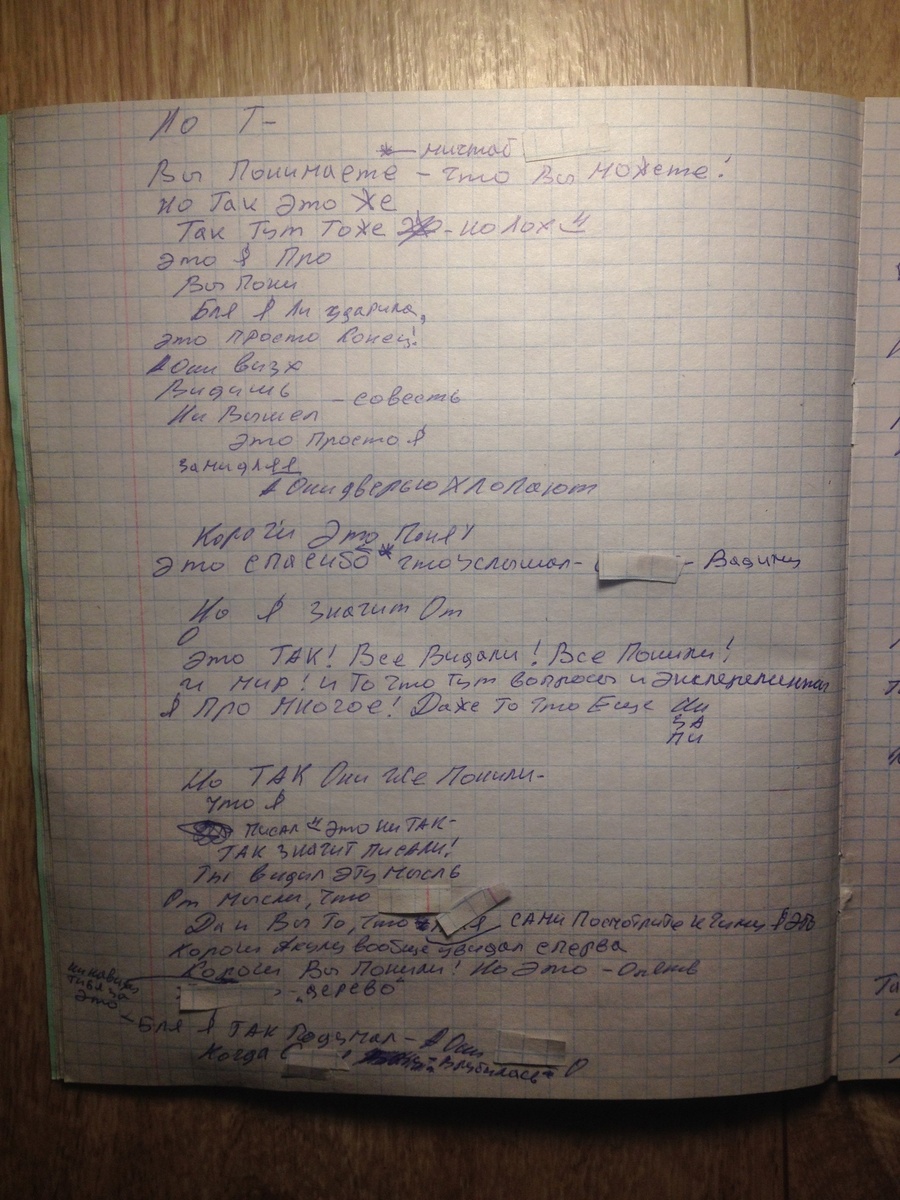 Но Т-
Вы Понимаете - Что Вы можете!
но Так Это Же
Так Тут Тоже
Это Я Про
Вы Пони
Бля Я Ли ударила,
Это просто Конец!
А Они визх
Видишь
- совесть
Ни Вышел
Это Просто Я
А Они дверью Хлопают
Это Поня!
Это спасибо * что услышал - - Вадину
Но Я значит От
О
Это ТАК! Все Видали! Все Понили!
и мир! и То что Тут вопросы и
Я Про Многое! Даже То Что Еще Ни
ЗА
ПИ
Но ТАК Они Же Понили-
Что Я
Писал " Это ни ТАК-
ТАК ЗНАЧИТ ПИСАЛИ!
Ты видил Эту мысль
От мысли, что
Да и Вы То, что САМИ Посмотрите Я Это
вообще увидал сперва
Вы Понили! Но Это -
- "дерево"
Это
- Бля Я ТАК Подумал - А Они
Когда влубилась О